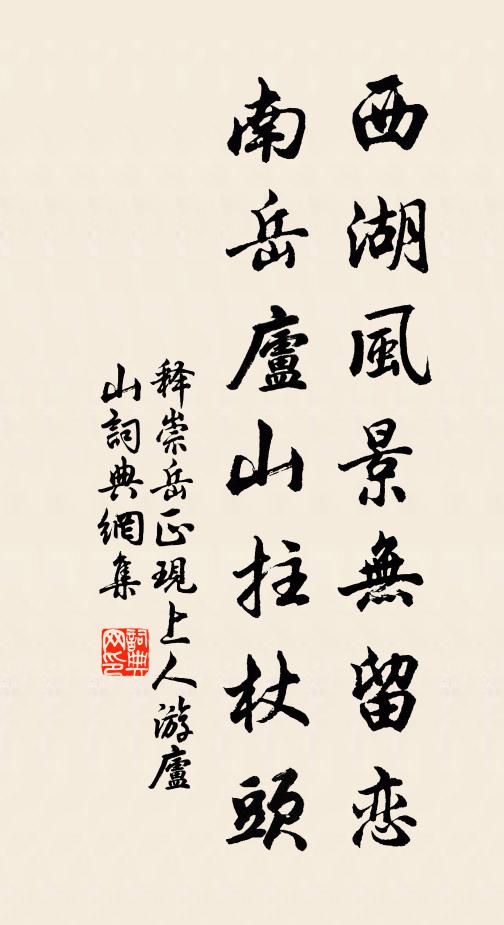 西湖風景無留恋
南岳廬山拄杖頭
释崇岳正現上人游廬
山詞典網集
詞典网印